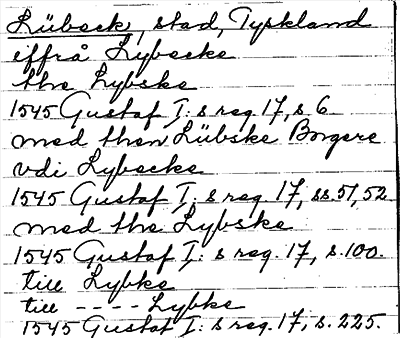 Lübeck, stad, Tyskland
iffrå Lybecke
the Lybske
1545 Gustaf I: s reg. 17, s. 6
med then Lübske Borgere
vdi Lybecke
1545 Gustaf I: s reg. 17, ss. 51, 52
med the Lybske
1545 Gustaf I: s reg. 17, s. 100.
till Lybke
till - - - - Lybke
1545 Gustaf I: s reg. 17, s. 225.